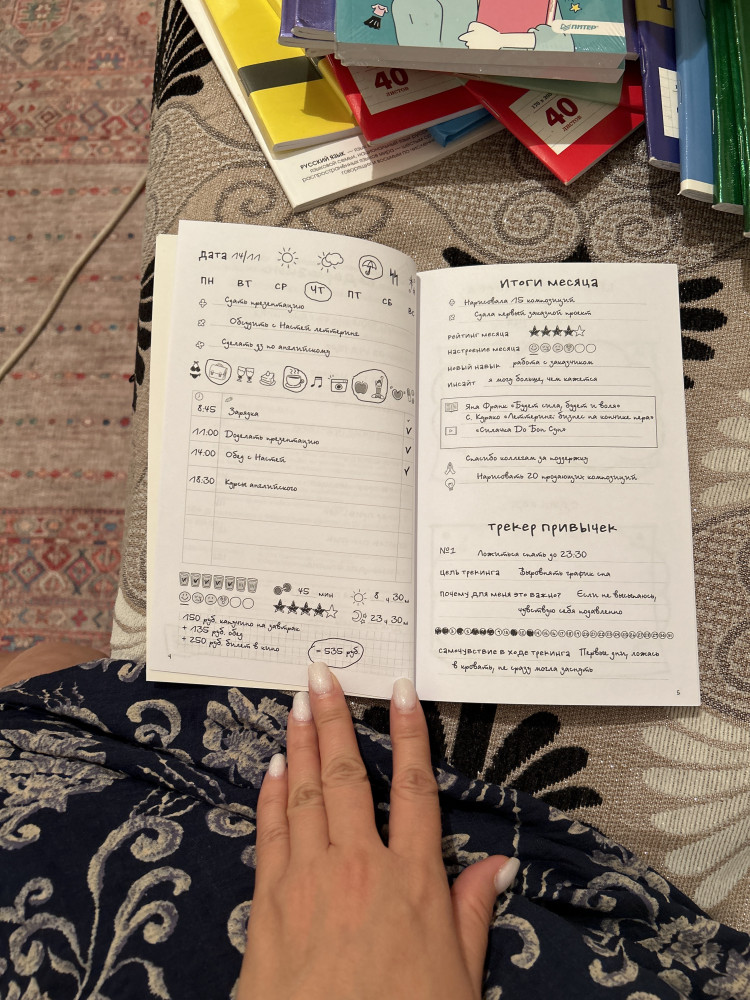 ПИТЕР
40
ЛИСТОВ
40
ЛИСТОВ
РУССКИЙ ЯЗЫК
языковой семьи, национальный язык
распространённых языков мира
говорящих и восьмым по
дата 14/11
ПН ВТ СР ЧТ ПТ СБ ВС
Сдать презентацию
Обсудить с Настей леттеринг
Сделать дз по английскому
8:45 Зарядка
11:00 Доделать презентацию
14:00 Обед с Настей
18:30 Курсы английского
45 мин
8 ч 30 м
23 ч 30 м
150 руб. капучино на завтрак
+ 135 руб. обед
+ 250 руб. билет в кино
- 535 руб.
4
Итоги месяца
Нарисовала 15 композиций
Сдала первый заказной проект
рейтинг месяца
настроение месяца
новый навык работа с заказчиком
инсайт я могу больше, чем кажется
Яна Франк «Будет сила, будет и воля»
С. Курако «Леттеринг: бизнес на кончике пера»
«Силачка До Бон Сун»
Спасибо коллегам за поддержку
Нарисовать 20 продающих композиций
трекер привычек
№1 Ложиться спать до 23:30
цель трекинга Выровнять график сна
почему для меня это важно? Если не высыпаюсь,
чувствую себя подавленно
самочувствие в ходе трекинга Первые дни, ложась
в кровать, не сразу могла заснуть
5